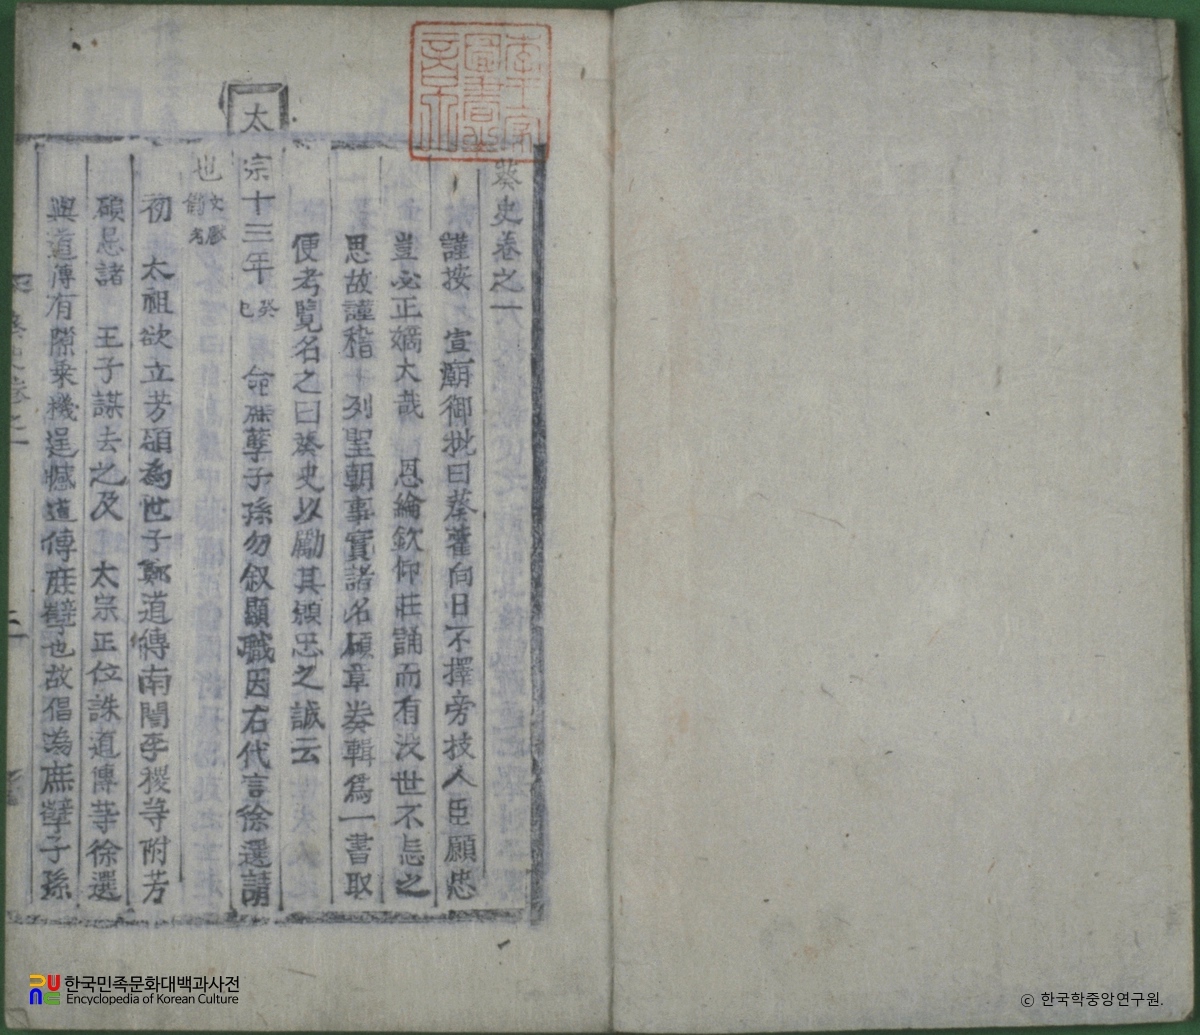 葵史卷之一
謹按 宣廟御批曰葵藿向日不擇旁枝人臣願忠
豈必正嫡大哉 恩綸欽仰莊誦而有沒世不忘之
思故謹稽 列聖朝事實諸名碩章奏輯爲一書取
便考覽名之曰葵史以勵其願忠之誠云
太宗十三年癸巳 命庶孽子孫勿叙顯職因右代言徐選請
也文獻備考
初 太祖欲立芳碩為世子鄭道傳南誾李稷等附芳
碩忌諸 王子謀去之及 太宗正位誅道傳等徐選
與道傳有隙乘機逞憾道傳庶孽也故倡為庶孽子孫
葵史卷之一
三
한국민족문화대백과사전
Encyclopedia of Korean Culture
© 한국학중앙연구원.